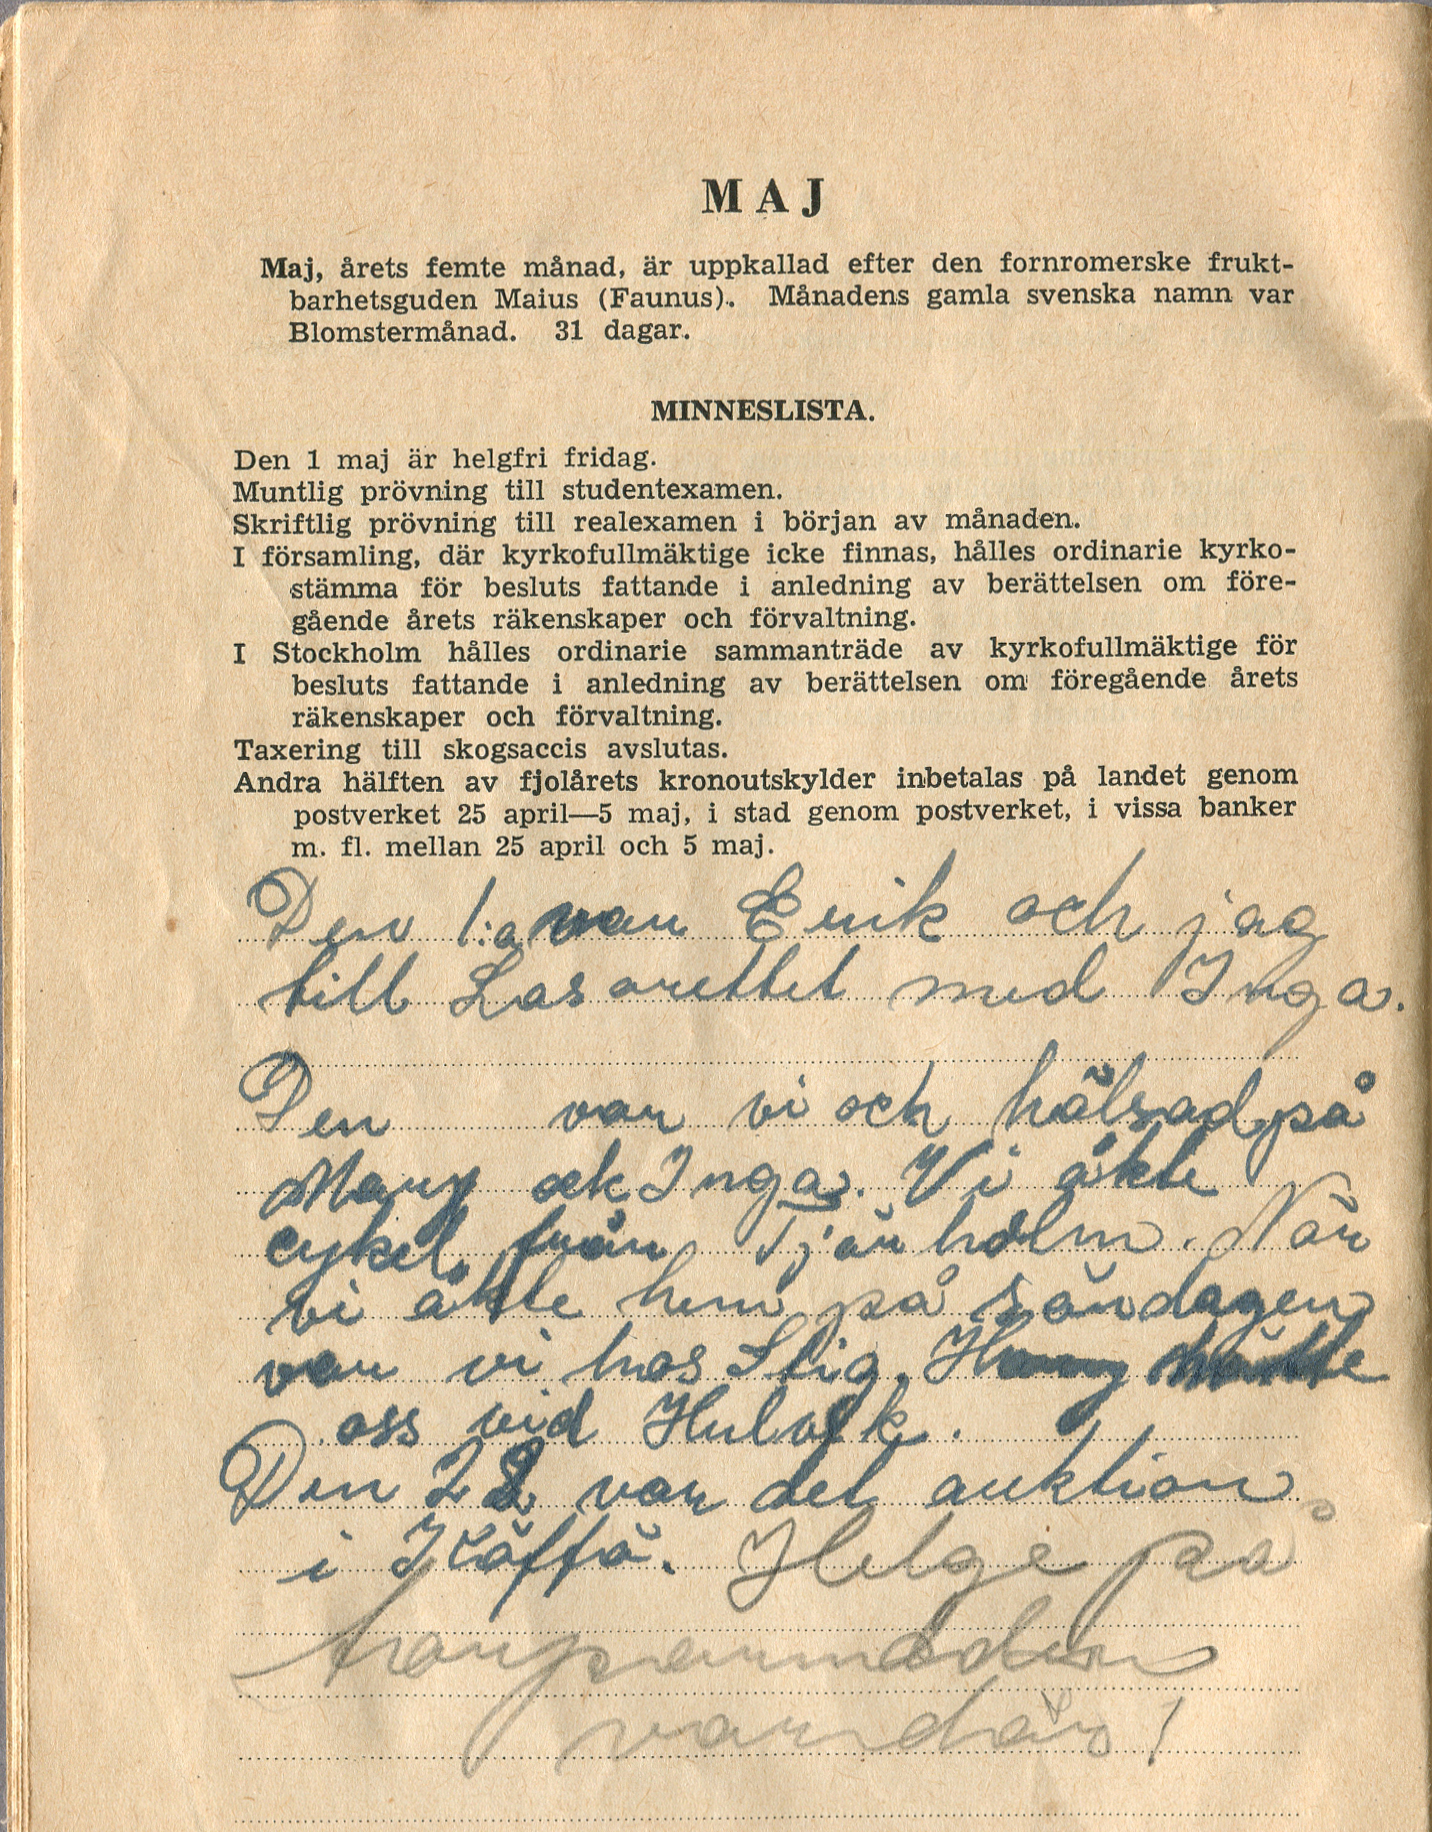 MAJ
Maj, årets femte månad, är uppkallad efter den fornromerske frukt-
barhetsguden Maius (Faunus). Månadens gamla svenska namn var
Blomstermånad. 31 dagar.
MINNESLISTA.
Den 1 maj är helgfri fridag.
Muntlig prövning till studentexamen.
Skriftlig prövning till realexamen i början av månaden.
I församling, där kyrkofullmäktige icke finnas, hålles ordinarie kyrko-
stämma för besluts fattande i anledning av berättelsen om före-
gående årets räkenskaper och förvaltning.
I Stockholm hålles ordinarie sammanträde av kyrkofullmäktige för
besluts fattande i anledning av berättelsen om föregående årets
räkenskaper och förvaltning.
Taxering till skogsaccis avslutas.
Andra hälften av fjolårets kronoutskylder inbetalas på landet genom
postverket 25 april—5 maj, i stad genom postverket, i vissa banker
m. fl. mellan 25 april och 5 maj.
Den 1:a var Erik och jag
till Lasarettet med Inga.
Den var vi och hälsad på
Mary ock Inga. Vi åkte
cykel från Tjärholm. När
vi åkte hem på söndagen
var vi hos Stig. mötte
oss vid
Den 28 var det auktion
i Helge på
var där!